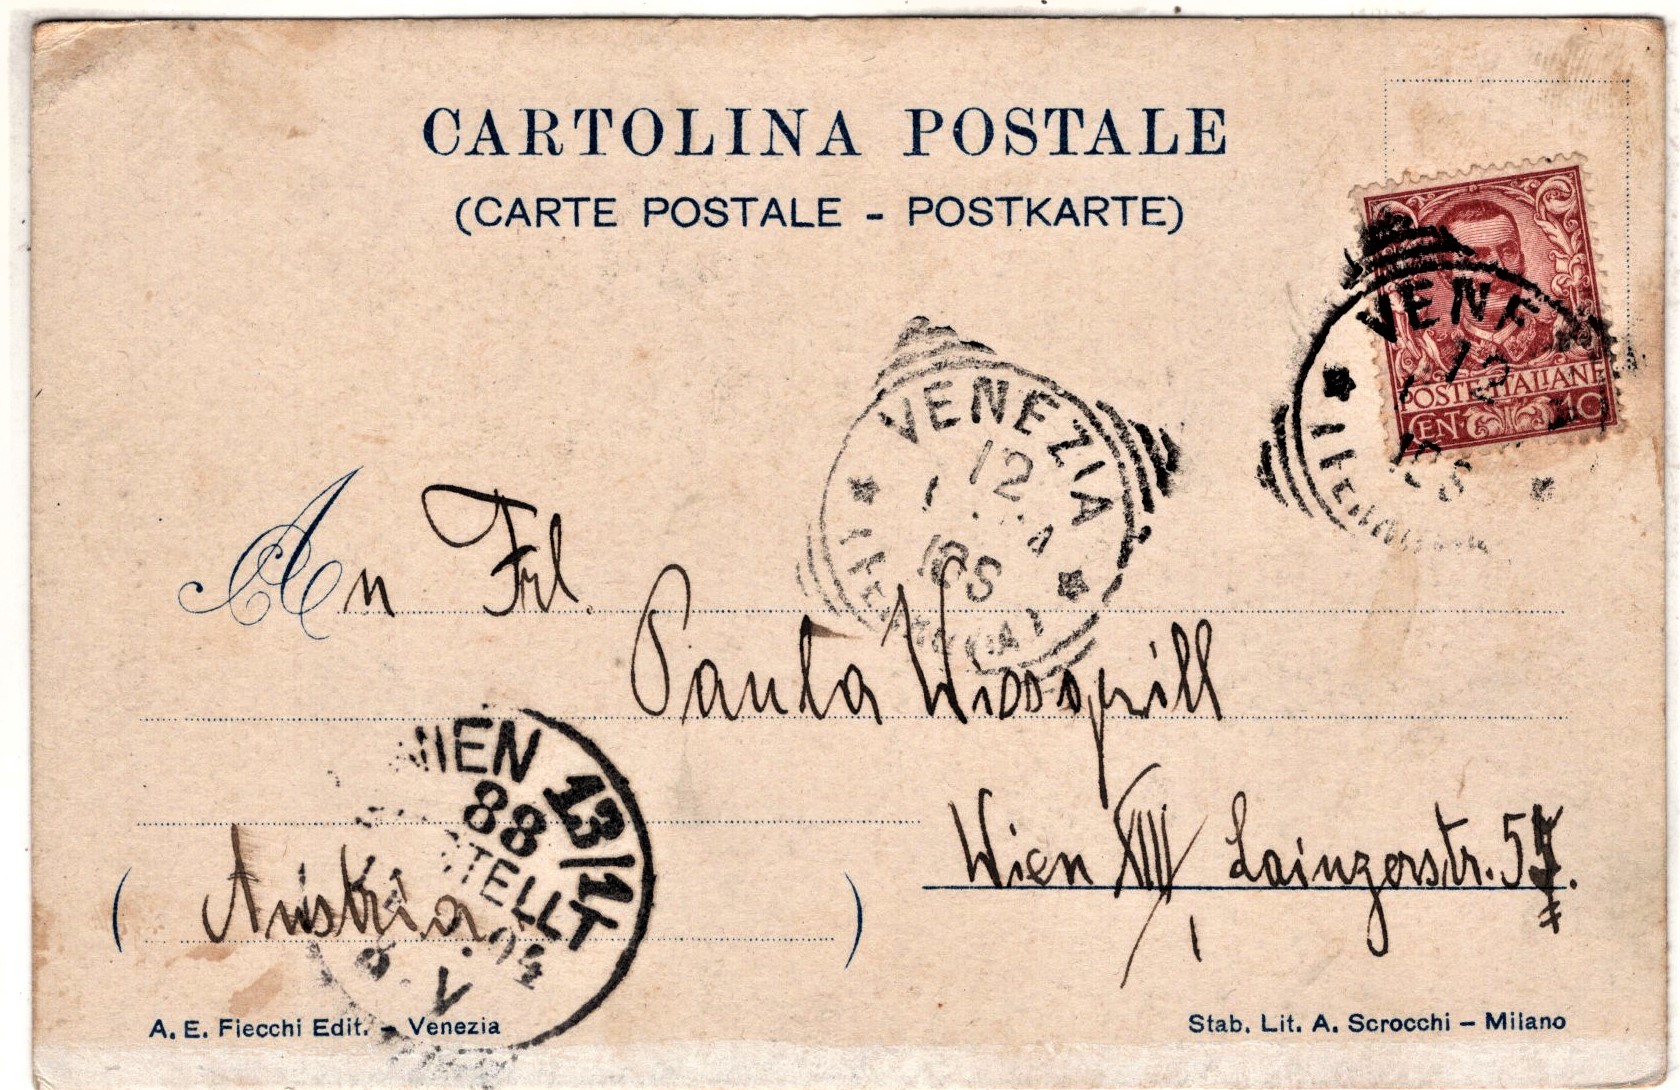 CARTOLINA POSTALE
(CARTE POSTALE - POSTKARTE)
POSTE ITALIANE
CENT 10
VENEZIA
12
VENEZIA
12
An Frl.
Paula Wissgrill
Wien XIII/1 Lainzerstr.
WIEN 13/1
88
BESTELLT
V
(Austria)
A. E. Fiecchi Edit. - Venezia
Stab. Lit. A. Scrocchi - Milano